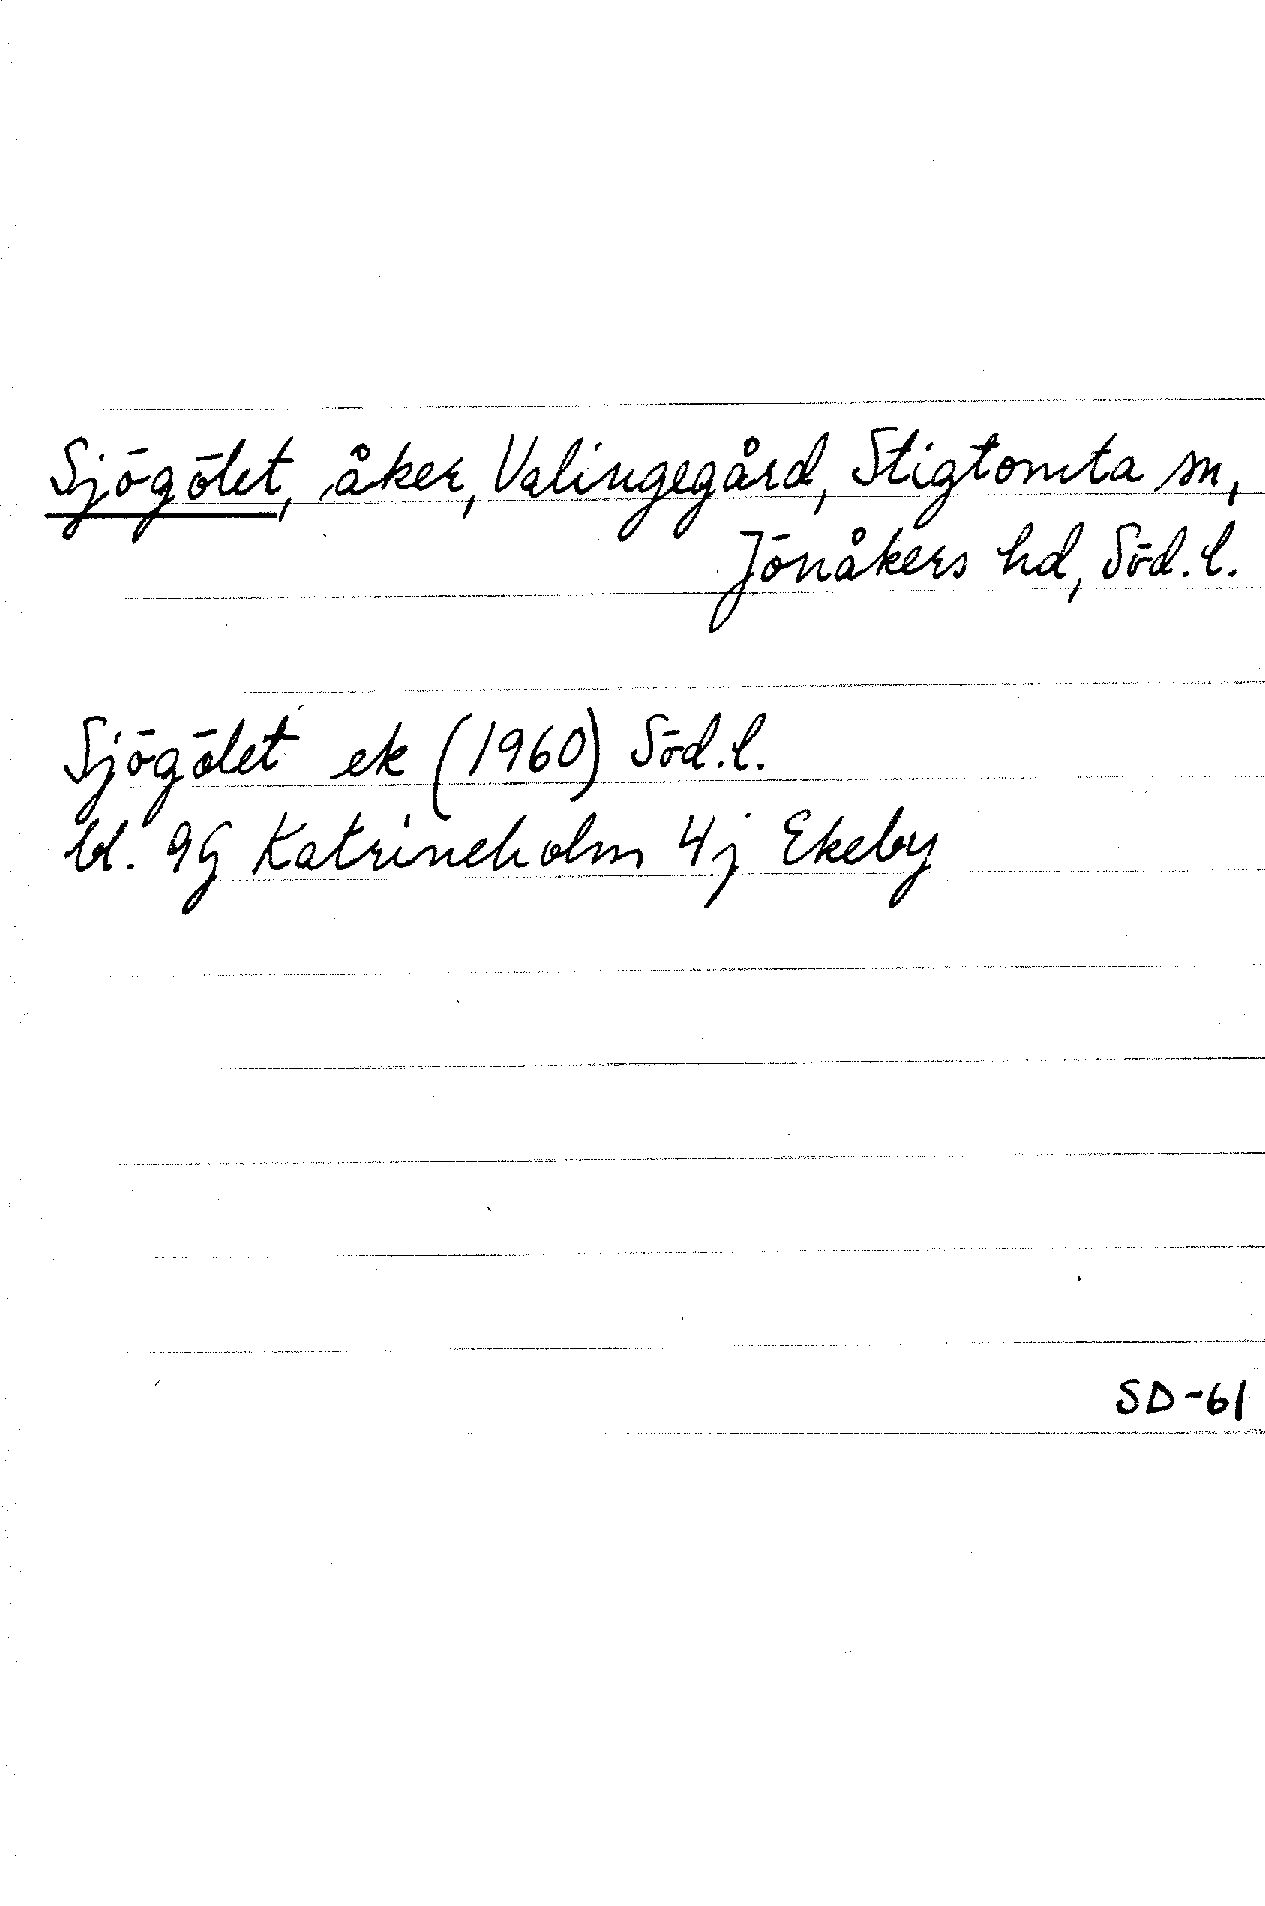 Sjögölet, åker, Valingegård, Stigtomta sn,
Jönåkers hd, Söd.l.
Sjögölet ek (1960) Söd.l.
bl. 9G Katrineholm 4j Ekeby
SD-61